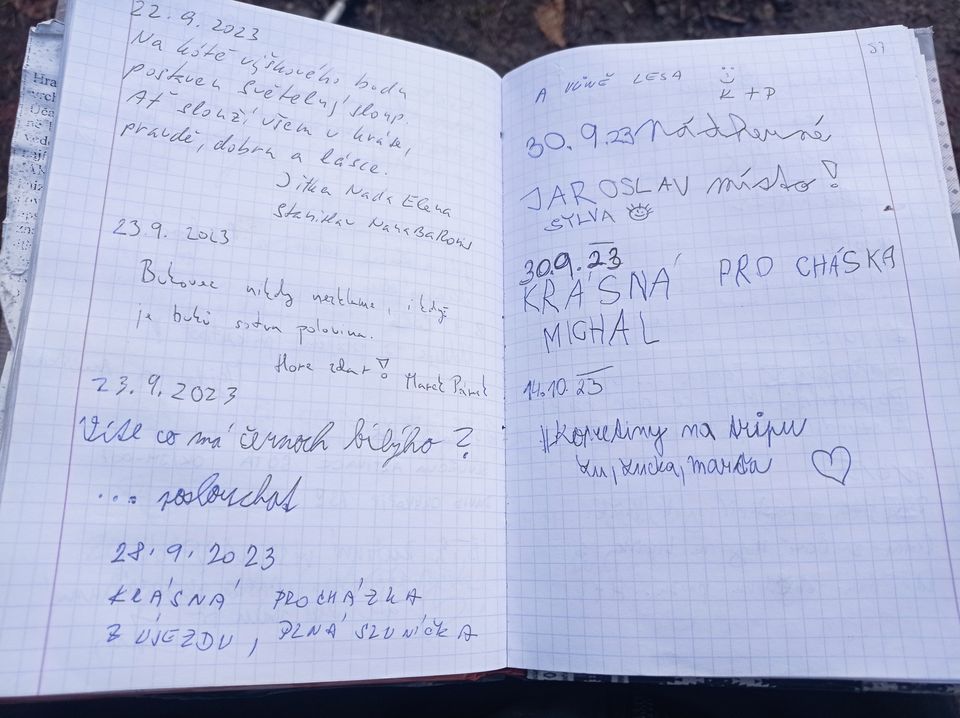 22.9.2023
Na kótě výškového bodu
postaven světelný sloup.
Ať slouží všem v kráse,
pravdě, dobru a lásce.
Jitka Naďa Elena
Stanislav
23.9.2023
Bukovec nikdy nezklame, i když
je buků sotva polovina.
Hore zdar! Marek
23.9.2023
Víte co má černoch bílýho?
... poslouchat
28.9.2023
KRÁSNÁ PROCHÁZKA
Z ÚJEZDU, PLNÁ SLUNÍČKA
37
A VŮNĚ LESA
K+P
30.9.23 Nádherné
JAROSLAV místo!
SYLVA
30.9.23
KRÁSNÁ PRO CHÁSKA
MICHAL
14.10.23
#Kopretiny na tripu
Lu, Lucka, Marta